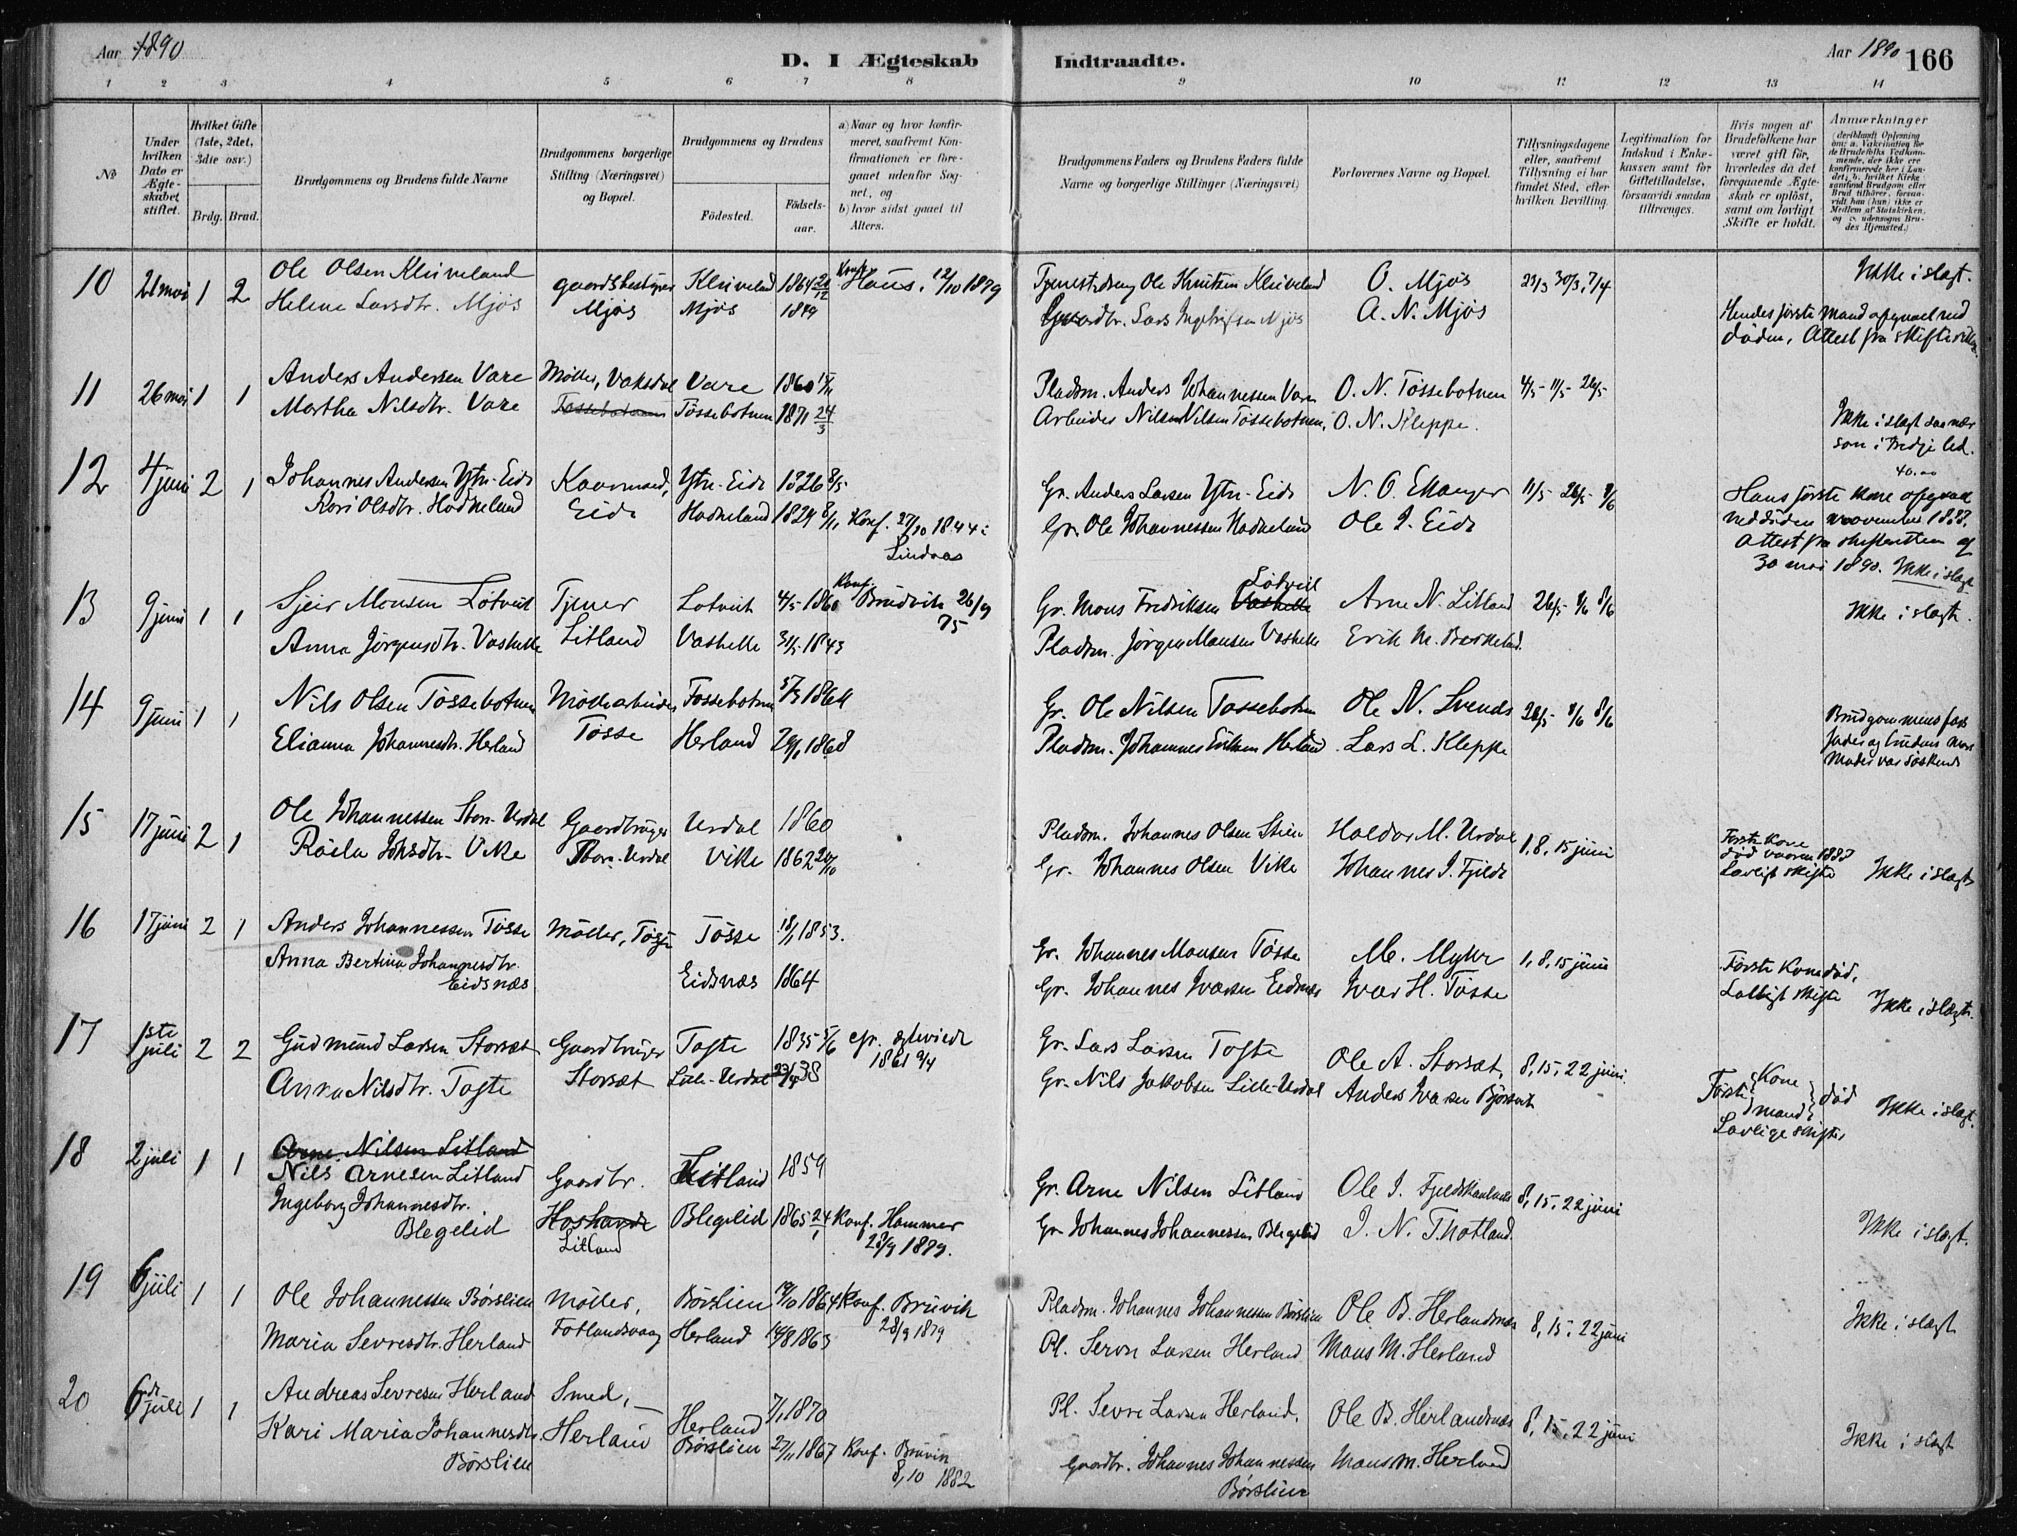 Aar 1890
D. 1 Ægteskab
Indtraadte.
Aar 1890
166
1 2 3 4 5 6 7 8 9 10 11 12 13 14
No
Under hvilken Dato er Ægteskabet stiftet.
Hvilket Gifte (1ste, 2det, 3die osv.)
Brdg. Brud.
Brudgommens og Brudens fulde Navne
Brudgommens borgerlige Stilling (Næringsvei) og Bopæl.
Brudgommens og Brudens
Födested.
Födselsaar.
a) Naar og hvor konfirmeret, saafremt Konfirmationen er foregaaet udenfor Sognet, og
b) hvor sidst gaaet til Alters.
Brudgommens Faders og Brudens Faders fulde Navne og borgerlige Stillinger (Næringsvei)
Forlovernes Navne og Bopæl.
Tillysningsdagene eller, saafremt Tillysning ei har fundet Sted, efter hvilken Bevilling.
Legitimation for Indskud i Enkekassen samt for Giftetilladelse, forsaavidt saadan tiltrænges.
Hvis nogen af Brudefolkene har været gift för, hvorledes da det foregaaende Ægteskab er oplöst, samt om lovligt Skifte er holdt.
Anmærkninger
10 26 mai 1 2 Ole Olsen Kleiveland gaardsbestyrer Kleiveland 1864 20/12 Konf. Haus, 12/10 1879 Ole Knutsen Kleiveland O. Mjøs 23/3 30/3, 7/4 Ikke i slægt.
Helene Larsdtr. Mjøs Mjøs Mjøs 1849 Lars Mjøs A. N. Mjøs Hendes første mand afgaaet ved døden, Attest fra
11 26 mai 1 1 Anders Andersen Vare Møller, Vaksdal Vare 1860 Pladsm. Anders Johannessen Vare O. N. Tøssebotnen 4/5 11/5 26/5
Martha Nilsdtr. Vare Tøssebotnen 1871 24/3 Arbeider Nilsen Tøssebotnen, O. N. Kleppe. Ikke i slægt saa nær som i tredje led.
12 4 juni 2 1 Johannes Andersen Ytre-Eide Kaarmand, Ytre-Eide 1826 8/5 Gr. Anders Larsen Ytre-Eide N. O. Ekanger 11/5 26/5 1/6 40.00
Kari Olsdtr. Hodneland Eide Hodneland 1824 8/11 Konf. 27/10 1844 i Lindaas Gr. Ole Johannessen Hodneland Ole J. Eide Hans første kone afgaaet ved døden november 1888. Attest fra skifteretten af 30 mai 1890. Ikke i slægt
13 9 juni 1 1 Sjeir Monsen Løtveit Tjener Lotveit 4/5 1860 Konf. Bruvik 26/9 75 Gr. Mons Fredriksen Løtveit Arne N. Litland 26/5 1/6 8/6 Ikke i slægt.
Anna Jørgensdtr. Vashelle Litland Vashelle 31/5 1843 Pladsm. Jørgen Monsen Vashelle Erik M.
14 9 juni 1 1 Nils Olsen Tøssebotnen Møllearbeider Tøssebotnen 1864 Gr. Ole Nilsen Tøssebotnen Ole N. 26/5 1/6 8/6
Elianna Johannesdtr. Herland Tøsse Herland 1868 Pladsm. Johannes Eriksen Herland Lars L. Kleppe Brudgommens far fader og brudens mors moder var søskende
15 17 juni 2 1 Ole Johannessen Store-Urdal Gaardbruger Urdal 1860 Pladsm. Johannes Olsen Stien Haldor M. Urdal 1, 8, 15 juni Første kone død vaaren 1888
Johsdtr. Vike Store-Urdal Vike 1862 20/10 Gr. Johannes Olsen Vike Johannes J. Fjelde Lovligt skifte Ikke i slægt
16 17 juni 2 1 Anders Johannessen Tøsse Møller, Tøsse Tøsse 18/1 1853. Gr. Johannes Monsen Tøsse M. Myhr 1, 8, 15 juni Første kone død,
Anna Bertina Johannesdtr. Eidsnæs Eidsnæs 1864 Gr. Johannes Ivarsen Eidsnæs Ivar H. Tøsse Lovligt skifte Ikke i slægt.
17 1ste juli 2 2 Gudmund Larsen Storsæt Gaardbruger Tofte 1835 5/6 1861 9/4 Gr. Lars Larsen Tofte Ole A. Storsæt, 8, 15, 22 juni. Første { Kone / mand } død
Anna Nilsdtr. Tofte Storsæt Lille-Urdal 38 Gr. Nils Jakobsen Lille-Urdal Anders Ivarsen Lovlige skifter, Ikke i slægt.
18 2 juli 1 1 Arne Nilsen Litland
Nils Arnesen Litland Gaardbr. Litland 1859 Gr. Arne Nilsen Litland Ole J. 8, 15, 22 juni
Ingeborg Johannesdtr. Blegelid Litland Blegelid 1865 24/1 Konf. Hammer 28/9 1879. Gr. Johannes Johannessen Blegelid J. N. Thotland. Ikke i slægt.
19 6 juli 1 1 Ole Johannessen Børslien Møller, Børslien 19/10 1864 Konf. Bruvik 28/9 1879 Pladsm. Johannes Johannessen Børslien Ole B. Herlandsnæs 8, 15, 22 juni Ikke i slægt
Maria Sevresdtr. Herland Fotlandsvaag Herland 14/8 1863 Pl. Sevre Larsen Herland Mons M. Herland
20 6te juli 1 1 Andreas Sevresen Herland Smed, Herland 7/1 1870 Pl. Sevre Larsen Herland. Ole B. Herlandsnæs 8, 15, 22 juni
Kari Maria Johannesdtr. Børslien Herland Børslien 27/11 1867 Konf. Bruvik 8/10 1882 Gaardbr. Johannes Johannessen Børslien Mons M. Herland Ikke i slægt